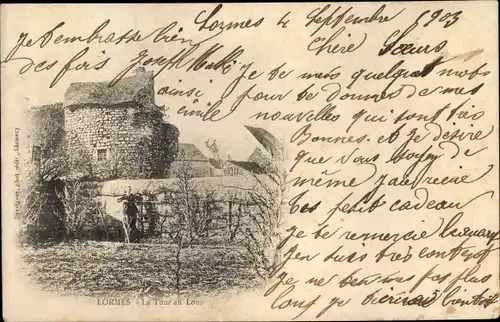 Lormes 4 Septembre 1903
Chère Sœur
Je t'embrasse bien
des fois Joseph
ainsi
émile
Je te mets quelques mots
pour te donner de mes
nouvelles qui sont très
Bonnes. et Je désire
que vous soyez de
même J'ai reçue
tes petit cadeau
Je te remercie
J'en suis très content
Je ne t'en mes pas plus
Je bientôt
LORMES - La Tour au Loup
phot. édit., Clamecy